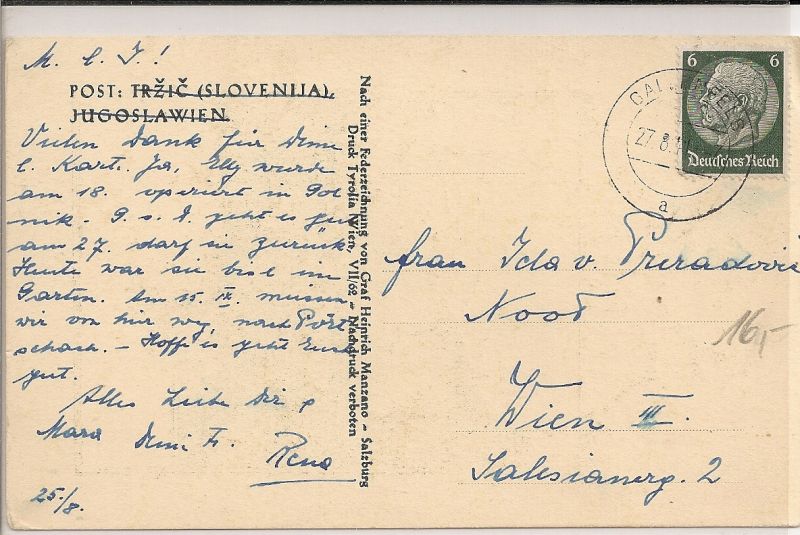 M. l. I!
POST: TRŽIČ (SLOVENIJA),
JUGOSLAWIEN.
Vielen Dank für Deine
l. Karte. Ja, Elly wurde
am 18. operiert in Gol-
nik. G. s. D. geht es gut
am 27. darf sie zurück
Heute war sie bis l im
Garten. Am 15. IX. müssen
wir von hier weg, nach Pört
schach. – Hoffe es geht Euch
gut.
Alles Liebe Dir
Mara Deine Fr.
Rena
25./8.
Nach einer Federzeichnung von Graf Heinrich Manzano – Salzburg
Druck Tyrolia Wien, VII/62 – Nachdruck verboten
6 6
Deutsches Reich
27 8
a
Frau Ida v. Preradović
Noot
Wien III.
Salesianerg. 2
16,-